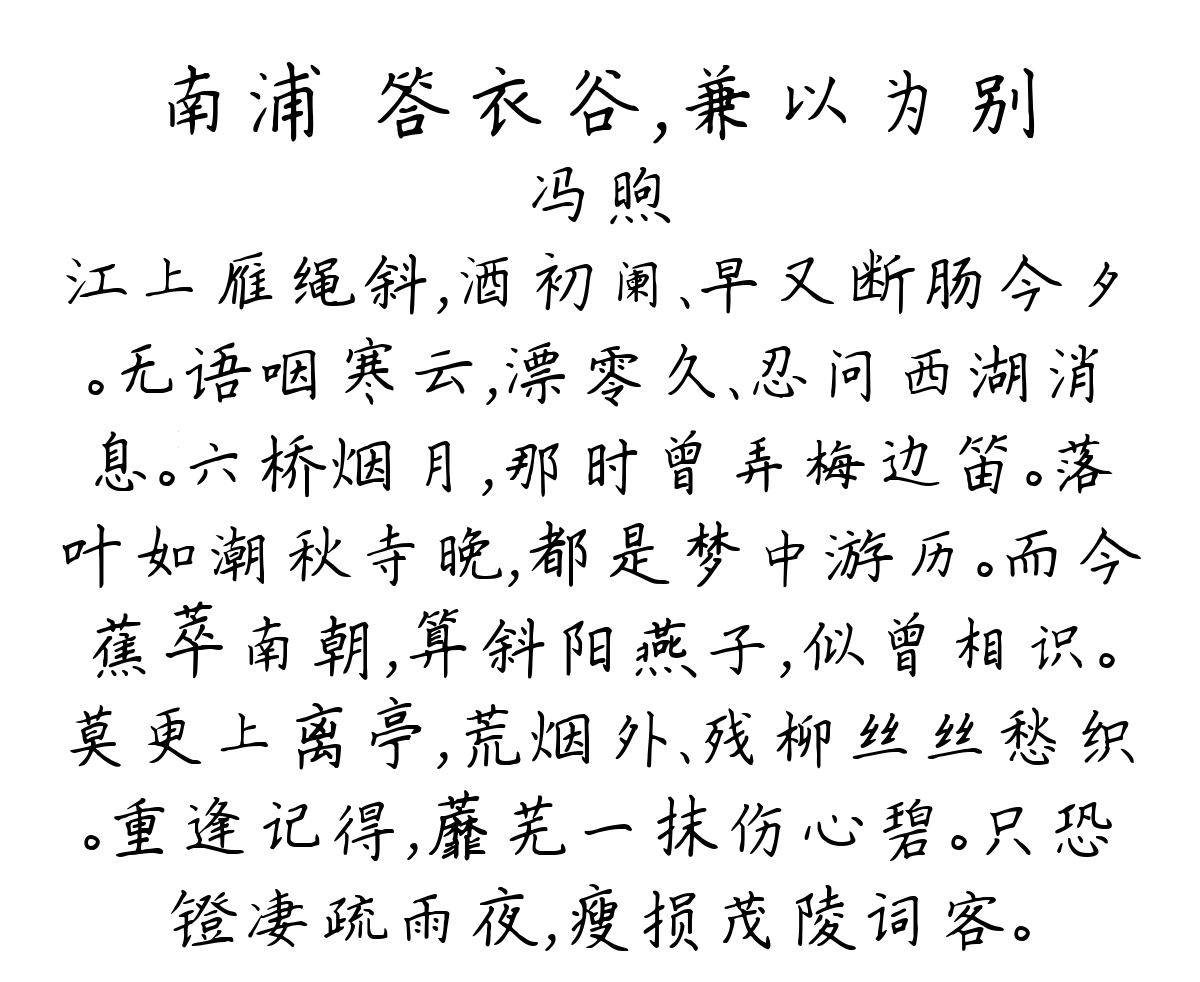 南浦 答衣谷,兼以为别
冯煦
江上雁绳斜,酒初阑、早又断肠今夕
。无语咽寒云,漂零久、忍问西湖消
息。六桥烟月,那时曾弄梅边笛。落
叶如潮秋寺晚,都是梦中游历。而今
蕉萃南朝,算斜阳燕子,似曾相识。
莫更上离亭,荒烟外、残柳丝丝愁织
。重逢记得,蘼芜一抹伤心碧。只恐
镫凄疏雨夜,瘦损茂陵词客。